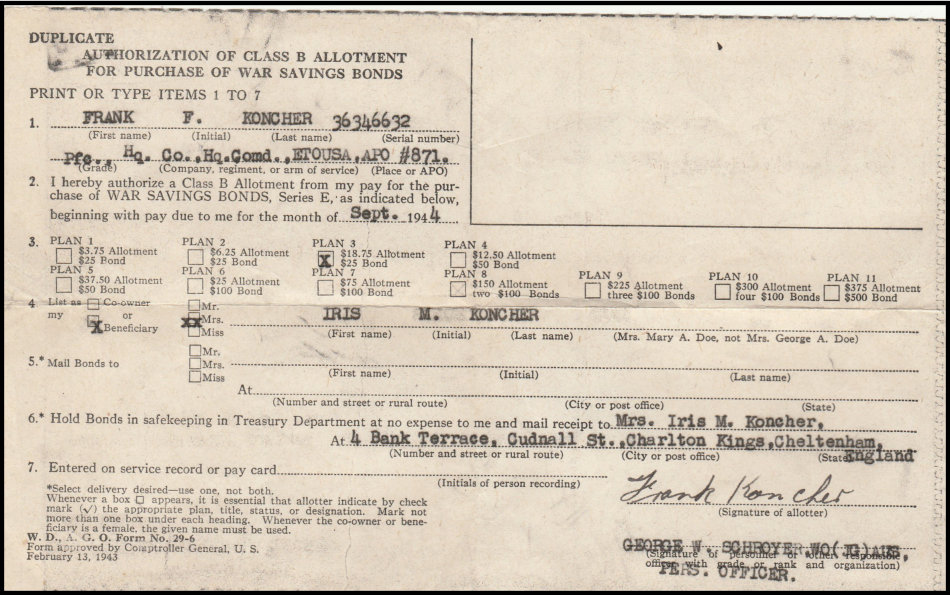 DUPLICATE
AUTHORIZATION OF CLASS B ALLOTMENT
FOR PURCHASE OF WAR SAVINGS BONDS
PRINT OR TYPE ITEMS 1 TO 7
1. FRANK F. KONCHER 36346632
(First name) (Initial) (Last name) (Serial number)
Pfc., Hq. Co., Hq. Comd., ETOUSA, APO #871.
(Grade) (Company, regiment, or arm of service) (Place or APO)
2. I hereby authorize a Class B Allotment from my pay for the pur-
chase of WAR SAVINGS BONDS, Series E, as indicated below,
beginning with pay due to me for the month of Sept. 1944
3. PLAN 1 $3.75 Allotment $25 Bond
PLAN 2 $6.25 Allotment $25 Bond
PLAN 3 X $18.75 Allotment $25 Bond
PLAN 4 $12.50 Allotment $50 Bond
PLAN 5 $37.50 Allotment $50 Bond
PLAN 6 $25 Allotment $100 Bond
PLAN 7 $75 Allotment $100 Bond
PLAN 8 $150 Allotment two $100 Bonds
PLAN 9 $225 Allotment three $100 Bonds
PLAN 10 $300 Allotment four $100 Bonds
PLAN 11 $375 Allotment $500 Bond
4 List as Co-owner Mr.
my or xx Mrs. IRIS M. KONCHER
X Beneficiary Miss (First name) (Initial) (Last name) (Mrs. Mary A. Doe, not Mrs. George A. Doe)
Mr.
5.* Mail Bonds to Mrs.
Miss (First name) (Initial) (Last name)
At
(Number and street or rural route) (City or post office) (State)
6.* Hold Bonds in safekeeping in Treasury Department at no expense to me and mail receipt to Mrs. Iris M. Koncher,
At 4 Bank Terrace, Cudnall St., Charlton Kings, Cheltenham,
(Number and street or rural route) (City or post office) (State) England
7. Entered on service record or pay card
(Initials of person recording)
*Select delivery desired—use one, not both.
Whenever a box □ appears, it is essential that allotter indicate by check
mark (✓) the appropriate plan, title, status, or designation. Mark not
more than one box under each heading. Whenever the co-owner or bene-
ficiary is a female, the given name must be used.
W. D., A. G. O. Form No. 29-6
Form approved by Comptroller General, U. S.
February 13, 1943
Frank Koncher
(Signature of allotter)
GEORGE W. SCHROYER, WO(JG)AUS,
(Signature of personnel or other responsible
officer with grade or rank and organization)
PERS. OFFICER.